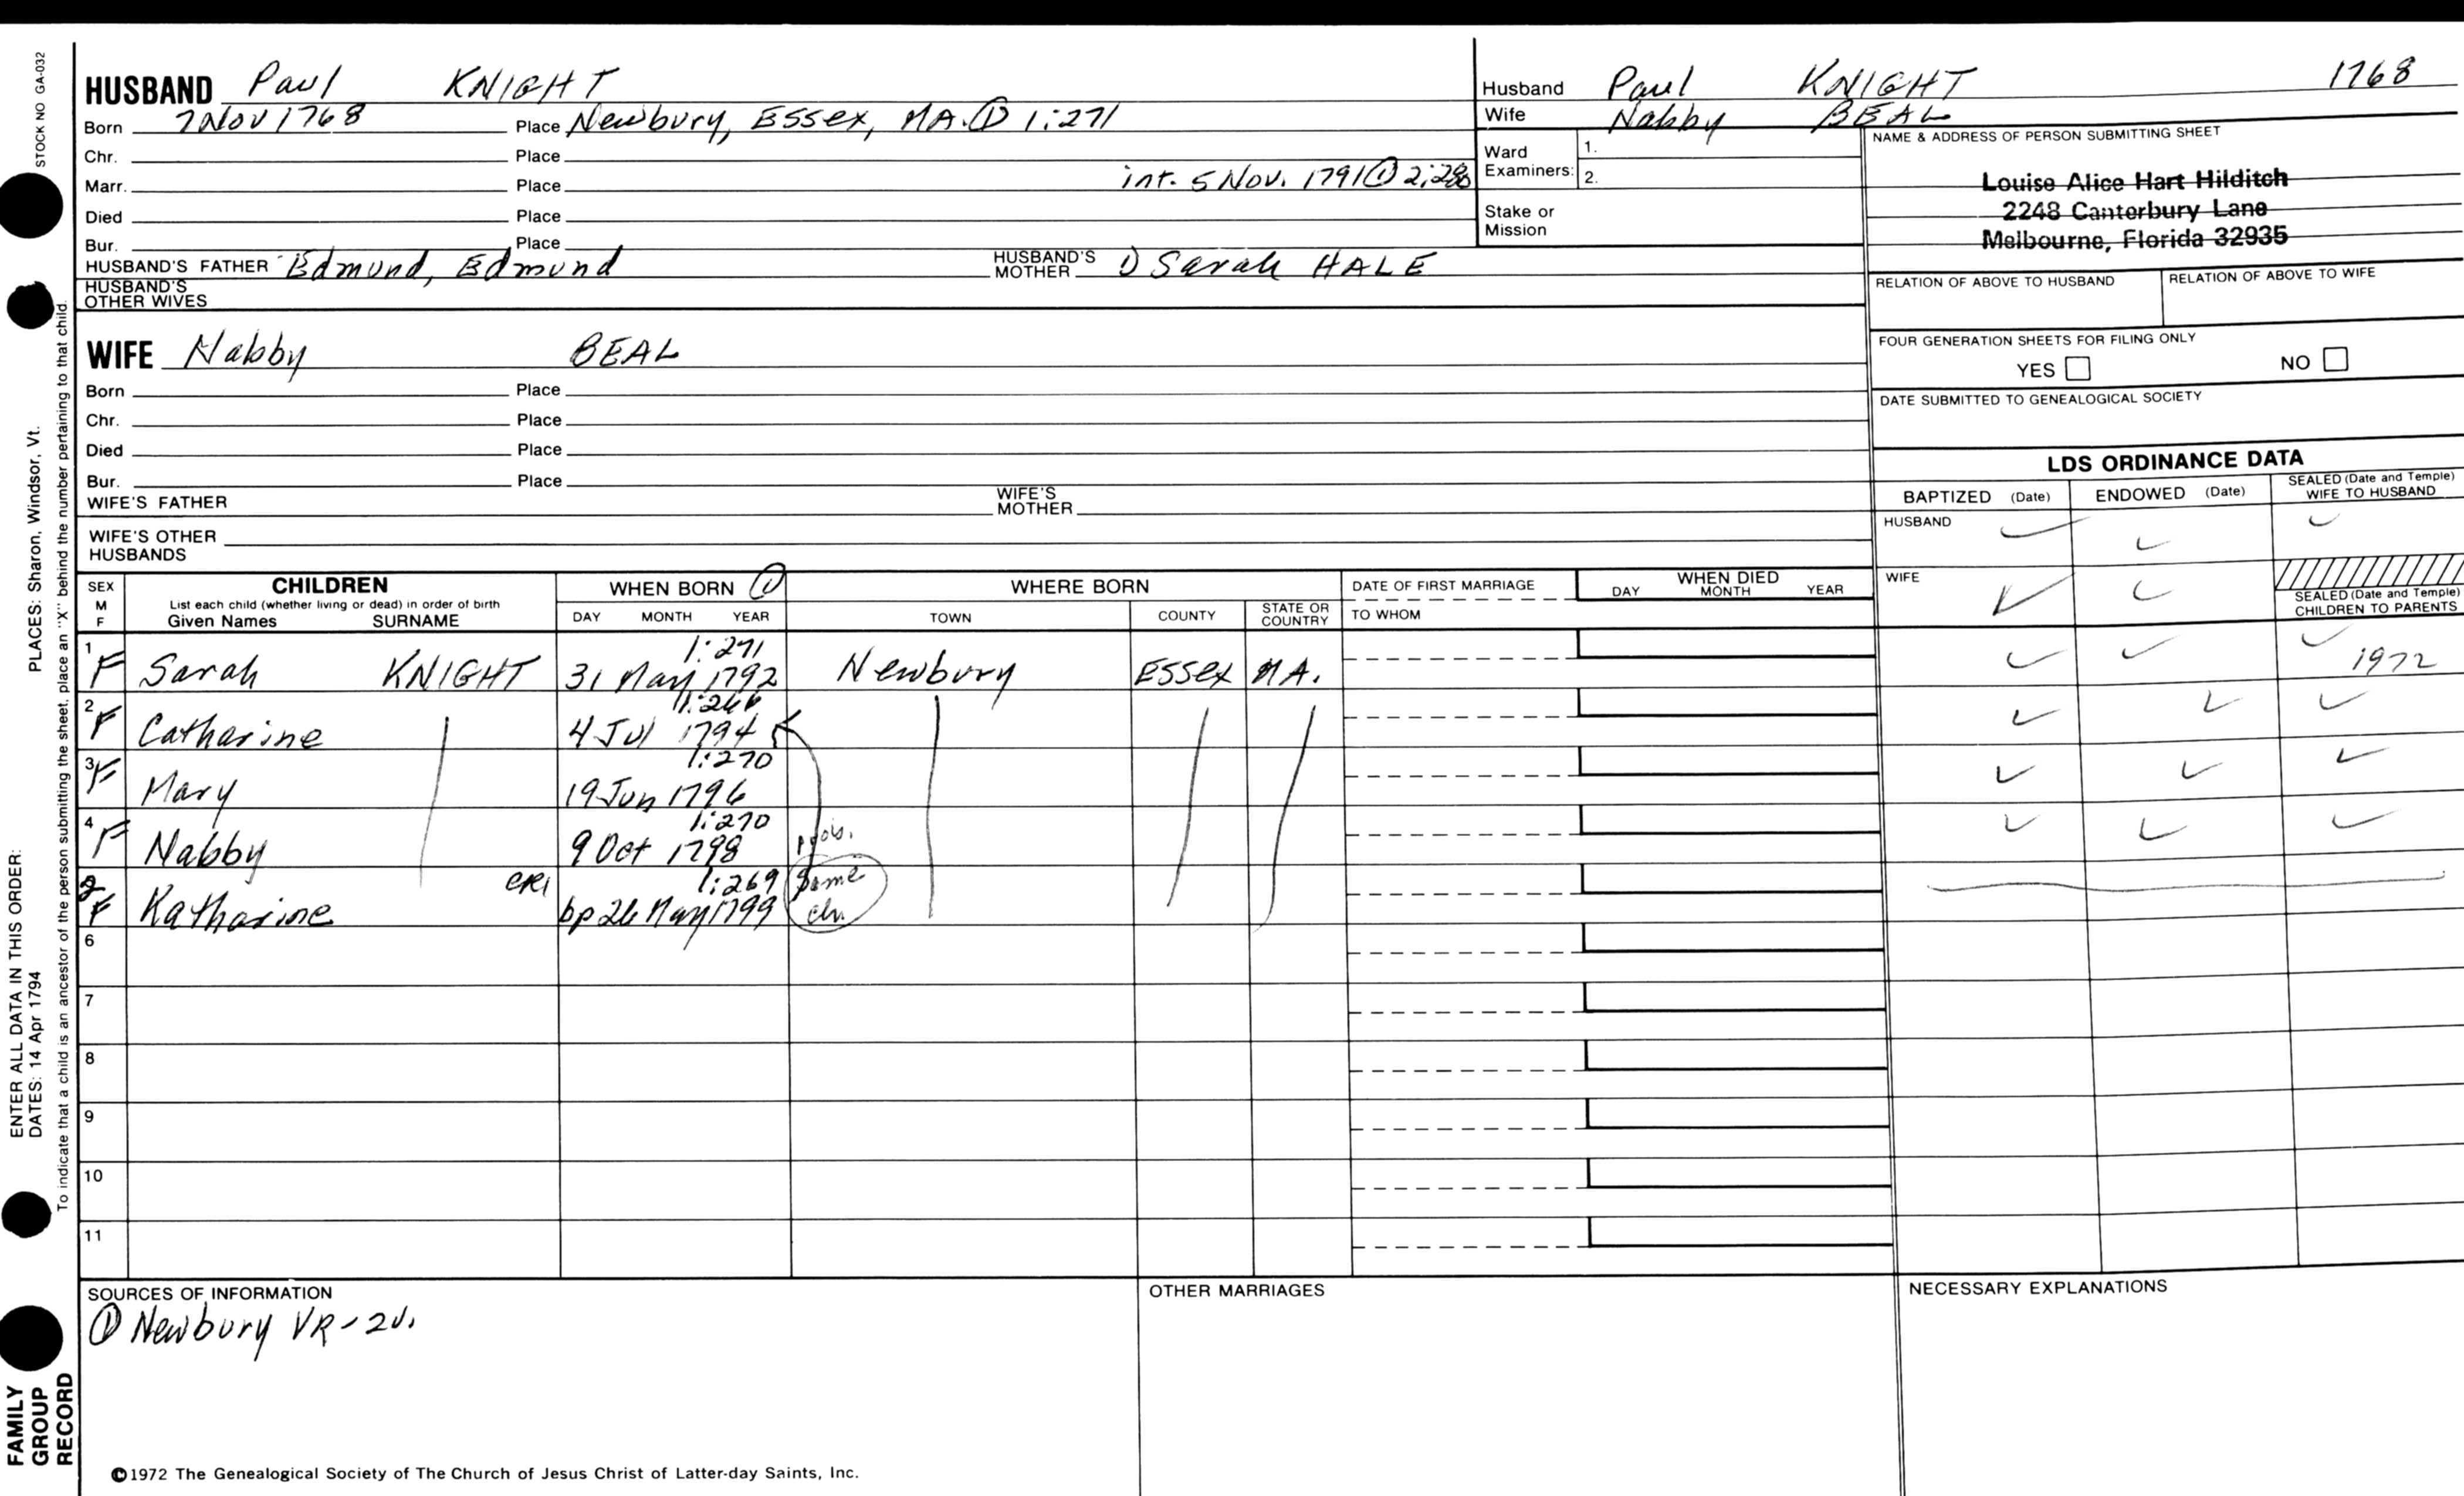 STOCK NO GA-032
PLACES: Sharon, Windsor, Vt.
ENTER ALL DATA IN THIS ORDER:
DATES: 14 Apr 1794
To indicate that a child is an ancestor of the person submitting the sheet, place an "X" behind the number pertaining to that child.
FAMILY
GROUP
RECORD
HUSBAND Paul KNIGHT
Born 7 Nov 1768 Place Newbury, Essex, MA. ① 1:271
Chr. Place
Marr. Place int. 5 Nov. 1791 ①
Died Place
Bur. Place
HUSBAND'S FATHER Edmund, Edmund HUSBAND'S MOTHER 1) Sarah HALE
HUSBAND'S
OTHER WIVES
WIFE Nabby BEAL
Born Place
Chr. Place
Died Place
Bur. Place
WIFE'S FATHER WIFE'S MOTHER
WIFE'S OTHER
HUSBANDS
Husband Paul KNIGHT 1768
Wife Nabby BEAL
Ward
Examiners: 1.
2.
Stake or
Mission
NAME & ADDRESS OF PERSON SUBMITTING SHEET
Louise Alice Hart Hilditch
2248 Canterbury Lane
Melbourne, Florida 32935
RELATION OF ABOVE TO HUSBAND RELATION OF ABOVE TO WIFE
FOUR GENERATION SHEETS FOR FILING ONLY
YES NO
DATE SUBMITTED TO GENEALOGICAL SOCIETY
LDS ORDINANCE DATA
BAPTIZED (Date) ENDOWED (Date) SEALED (Date and Temple)
WIFE TO HUSBAND
HUSBAND
WIFE
SEALED (Date and Temple)
CHILDREN TO PARENTS
SEX
M
F
CHILDREN
List each child (whether living or dead) in order of birth
Given Names SURNAME
WHEN BORN ①
DAY MONTH YEAR
WHERE BORN
TOWN COUNTY STATE OR COUNTRY
DATE OF FIRST MARRIAGE
TO WHOM
WHEN DIED
DAY MONTH YEAR
1:271
1 F Sarah KNIGHT 31 May 1792 Newbury Essex MA. 1972
1:266
2 F Catharine 4 Jul 1794
1:270
3 F Mary 19 Jun 1796
1:270
4 F Nabby 9 Oct 1798 prob.
CR1 1:269 same
2 F Katharine bp 26 May 1799 ch.
6
7
8
9
10
11
SOURCES OF INFORMATION
① Newbury VR-2v.
OTHER MARRIAGES
NECESSARY EXPLANATIONS
©1972 The Genealogical Society of The Church of Jesus Christ of Latter-day Saints, Inc.